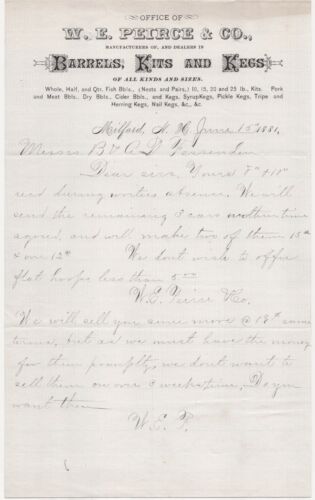 OFFICE OF
W. E. PEIRCE & CO.,
MANUFACTURERS OF, AND DEALERS IN
BARRELS, KITS AND KEGS
OF ALL KINDS AND SIZES.
Whole, Half, and Qtr. Fish Bbls., (Nests and Pairs,) 10, 15, 20 and 25 lb., Kits. Pork
and Meat Bbls., Dry Bbls., Cider Bbls., and Kegs, Syrup Kegs, Pickle Kegs, Tripe and
Herring Kegs, Nail Kegs, &c., &c.
Milford, N. H. June 15 1881,
Messrs B & C D
Dear sirs, Yours 8th & 11th
recd during writers absence. We will
send the remaining 3 cars within time
agreed, and will make two of them 15th
& one 12th We dont wish to offer
flat hoops less than 5.00
W. E. Peirce & Co.
We will sell you some more @ 13th same
terms, but as we must have the money
for them promptly, we dont want to
sell them on over 3 weeks time, Do you
want them
W. E. P.